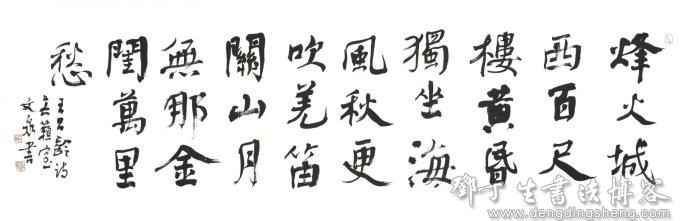 烽火城
西百尺
樓黄昏
獨坐海
風秋更
吹羌笛
關山月
無那金
閨萬里
愁
王昌齡詩
文泉書
鄧丁生書法博客
www.dengdingsheng.com